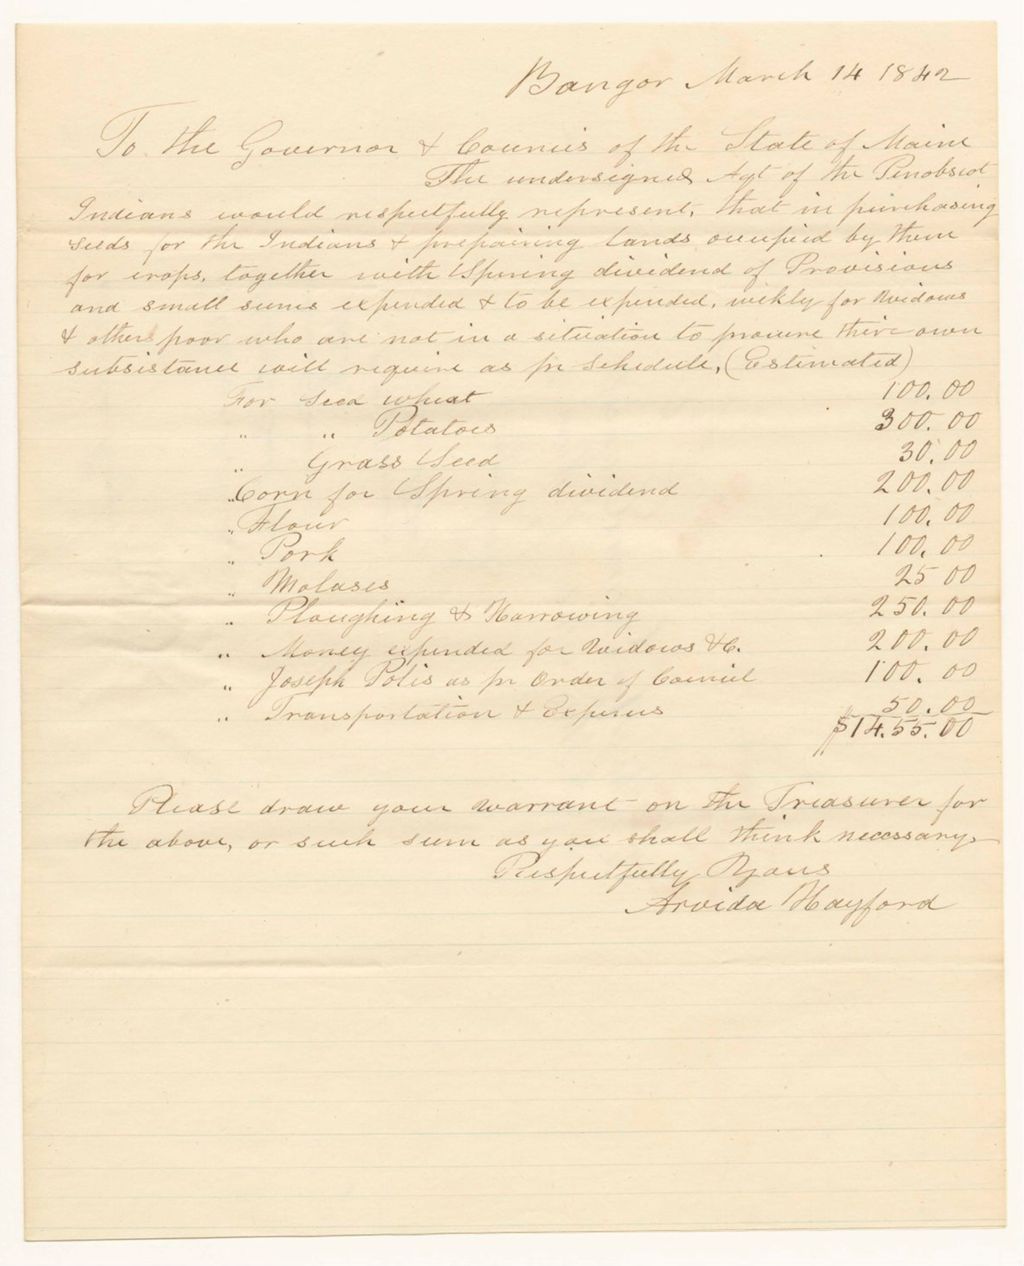 Bangor March 14 1842
To the Governor & Council of the State of Maine
The undersigned Agt of the Penobscot
Indians would respectfully represent, that in purchasing
seeds for the Indians & prepairing lands occupied by them
for crops, together with Spring dividend of Provisions
and small sums expended & to be expended, wekly for Widows
& others poor who are not in a situation to procure their own
subsistance will require as pr Schedule, (Estimated)
For Seed wheat 100.00
" " Potatoes 300.00
" Grass Seed 30.00
" Corn for Spring dividend 200.00
" Flour 100.00
" Pork 100.00
" Molases 25 00
" Ploughing & Harrowing 250.00
" Money expended for Widows &C. 200.00
" Joseph Polis as pr Order of Council 100.00
" Transportation & Expenses 50.00
$14.55.00
Please draw your warrant on the Treasurer for
the above, or such sum as you shall think necessary.
Respectfully Yours
Arvida Hayford